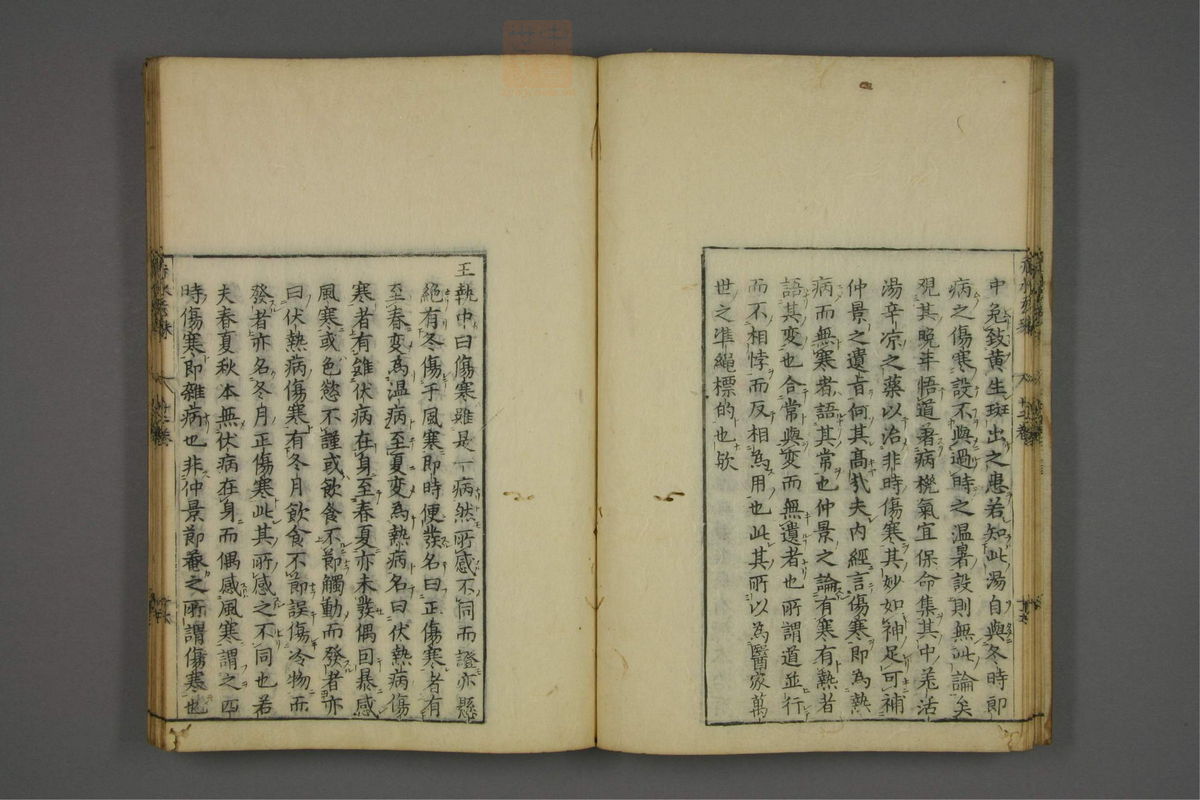 中免致黄生斑出之患若知此湯自與冬時即
病之傷寒設不與過時之温暑設則無此論矣
覌其晩年悟道著病機氣宜保命集其中羗活
湯辛凉之薬以治非時傷寒其妙如神足可補
仲景之遺旨何其髙㢤夫内經言傷寒即為熱
病而無寒者語其常也仲景之論有寒有熱者
語其変也合常與変而無遺者也所謂道並行
而不相悖而反相為用也此其所以為醫家萬
世之凖繩標的也欤
王執中曰傷寒雖是一病然所感不同而證亦懸
絶有冬傷于風寒即時便發名曰正傷寒者有
至春変為温病至夏変為熱病名曰伏熱病傷
寒者有雖伏病在身至春夏亦未發偶因暴感
風寒或色慾不謹或飲食不節觸動而發者亦
曰伏熱病傷寒有冬月飲食不節誤傷冷物而
發者亦名冬月正傷寒此其所感之不同也若
夫春夏秋本無伏病在身而偶感風寒謂之四
時傷寒即雜病也非仲景節菴之所謂傷寒也